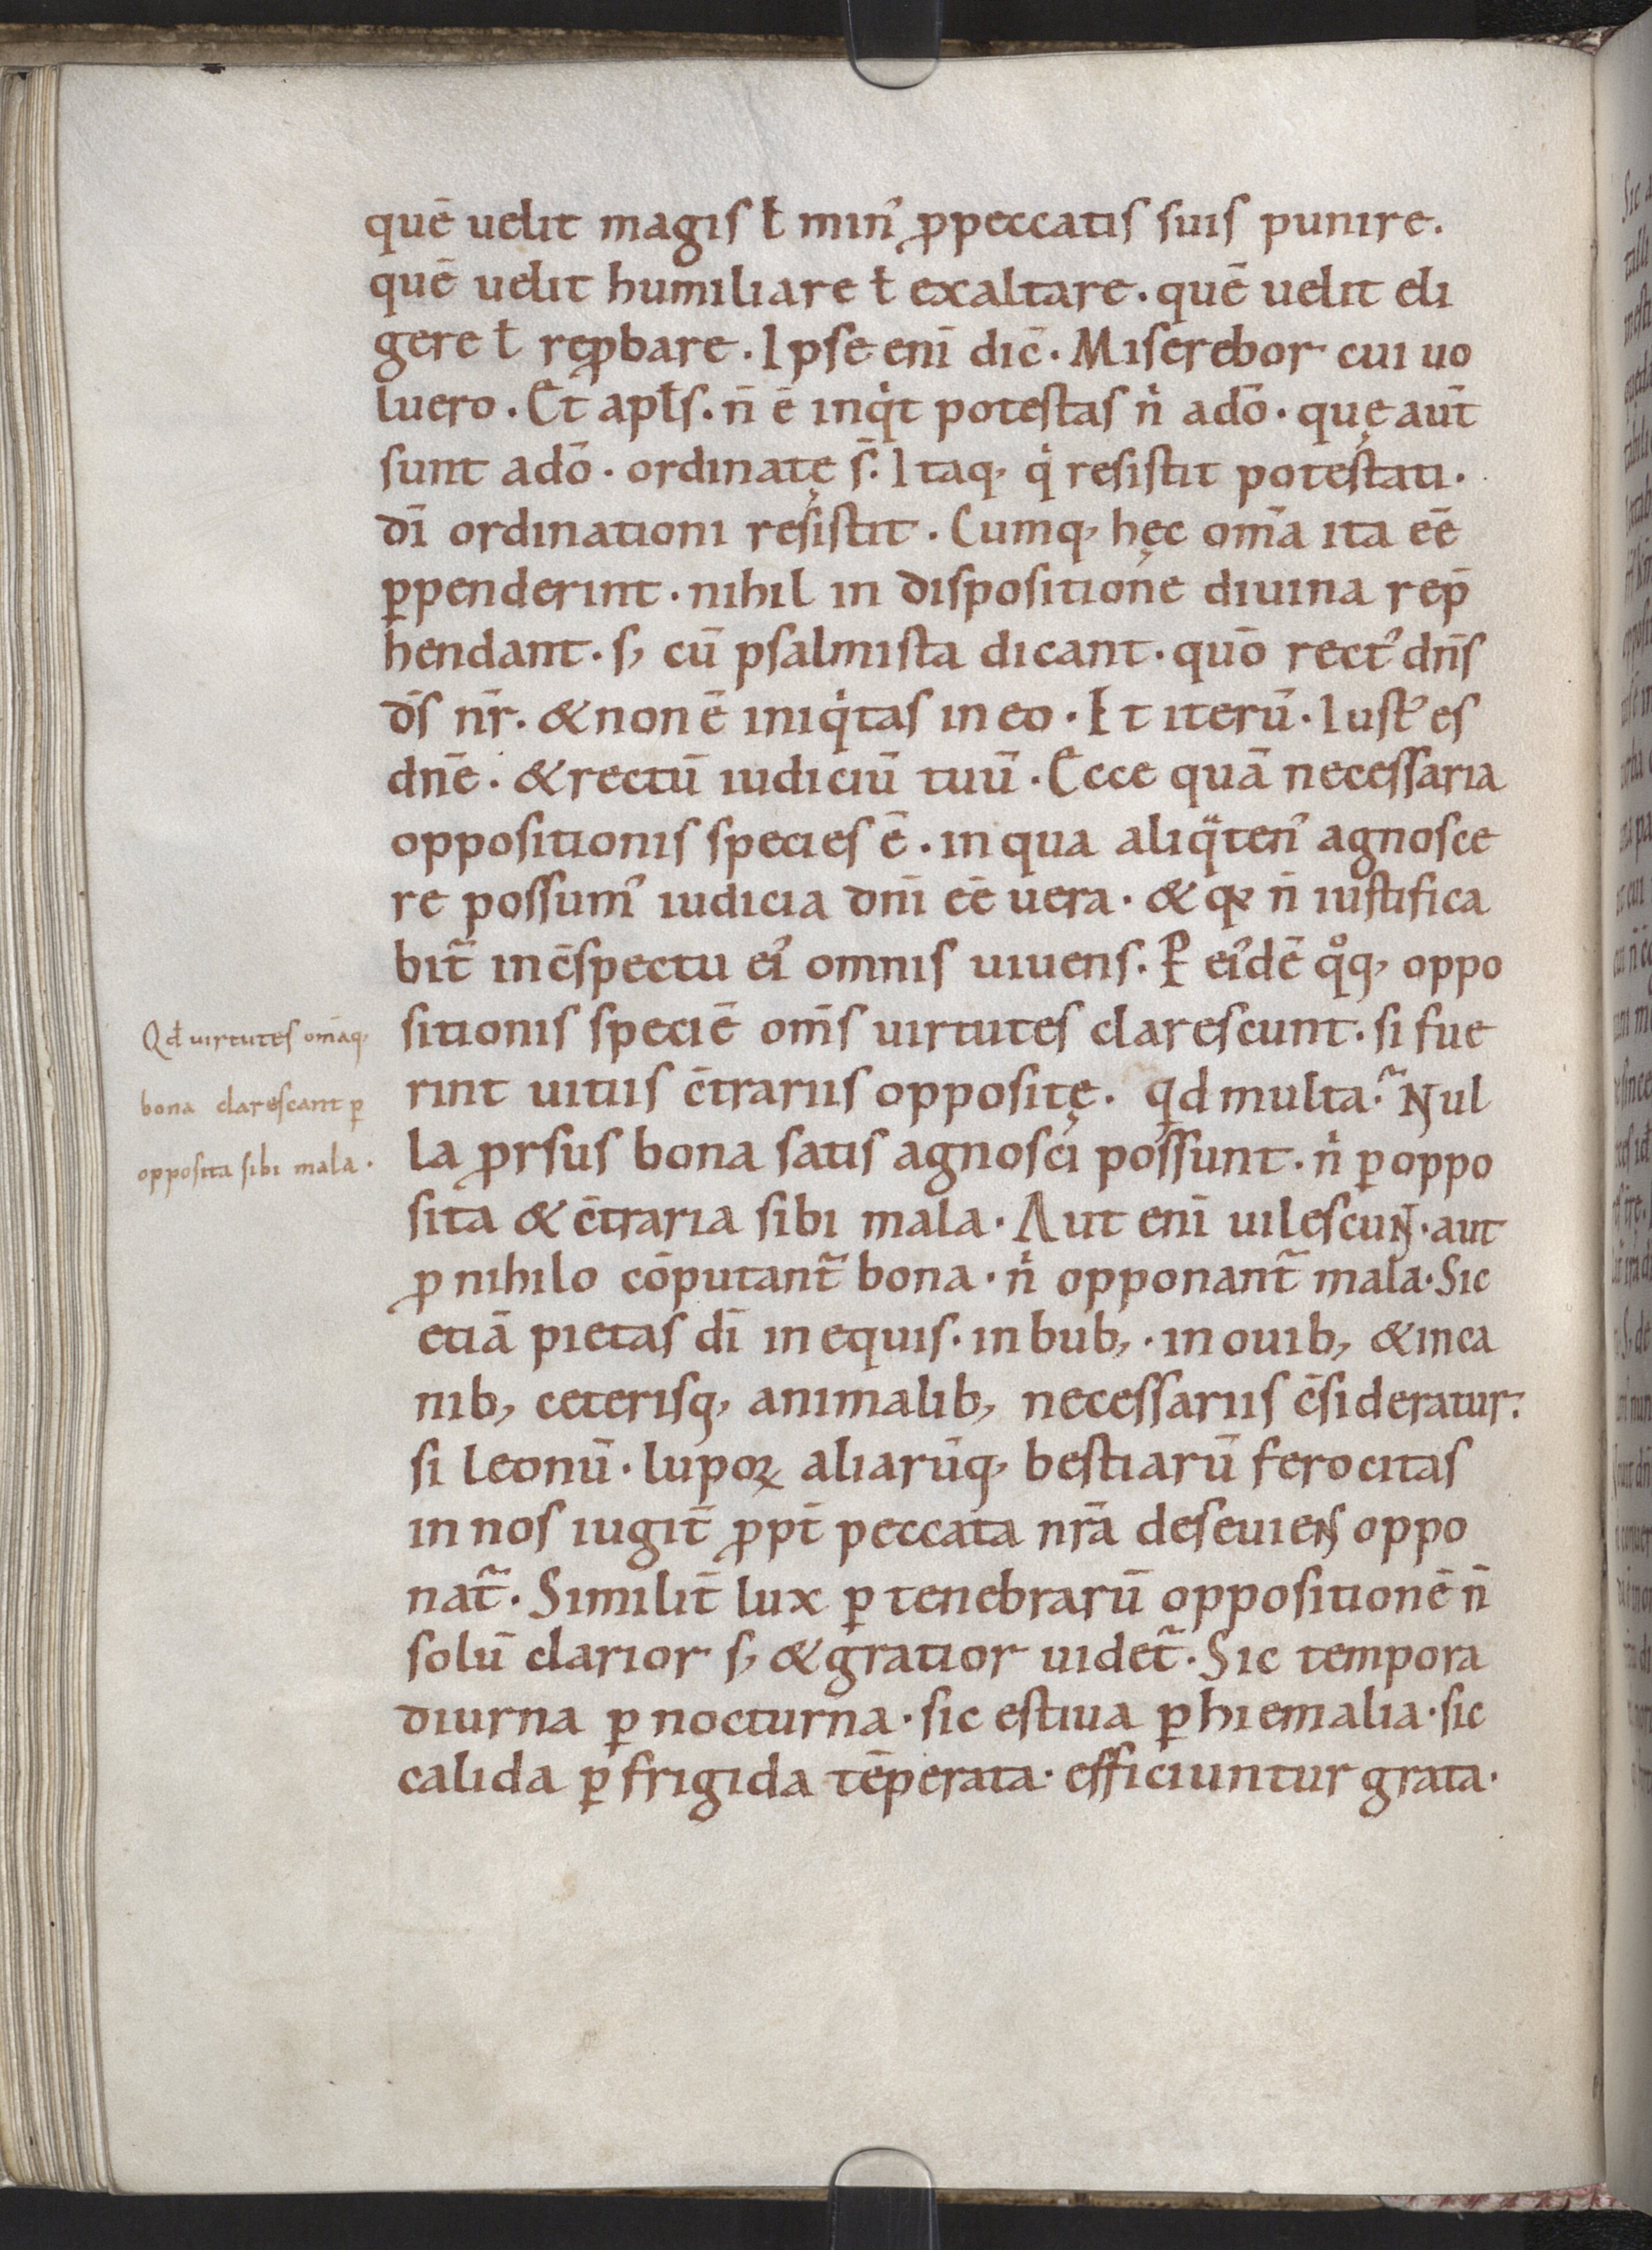 quē uelit magis ƚ min᾽ ꝓpeccatis suis punire.
quē uelit humiliare ƚ exaltare. quē uelit eli
gere ƚ reꝓbare. Ipse eni̅ dic̅. Miserebor cui uo
luero. Et apƚs. n̅ ē inqͥt potestas nͥ ado̅. quę aut̅
sunt ado̅. ordinatę s̅. Itaq, qͥ resistit potestati.
di̅ ordinationi resistit. Cumq, hęc om̅a ita ee̅
ꝑpenderint. nihil in dispositione diuina rep̅
hendant. s, cu̅ psalmista dicant. quo̅ rect᾽ dn̅s
ds̅ nr̅. & non ē iniqͥtas in eo. Et iteru̅. Iust᾽ es
dn̅e. & rectu̅ iudiciu̅ tuu̅. Ecce qua̅ necessaria
oppositionis species ē. in qua aliqᷓten᾽ agnosce
re possum᾽ iudicia dni̅ ee̅ uera. & qꝛ n̅ iustifica
bit᷑ in c̅spectu ei᾽ omnis uiuens. P̲ ei᾽de̅ qͦq, oppo
sitionis specie̅ om̅s uirtutes clarescunt. si fue
rint uitiis c̅trariis oppositę. qd multa.᷑ Nul
la ꝓrsus bona satis agnosci possunt. nͥ ꝑ oppo
sita & c̅traria sibi mala. Aut eni̅ uilescunt. aut
ꝓ nihilo co̅putant᷑ bona. nͥ opponant᷑ mala. Sic
etia̅ pietas di̅ in equis. in bub,. in ouib, & in ca
nib, ceterisq, animalib, necessariis c̅sideratur.
si leonu̅. lupoꝝ aliaru̅q, bestiaru̅ ferocitas
in nos iugit̅ ꝓpt̅ peccata nr̅a deseuiens oppo
nat᷑. Similit̅ lux ꝑ tenebraru̅ oppositione̅ n̅
solu̅ clarior s, & gratior uidet᷑. Sic tempora
diurna ꝑ nocturna. sic estiua ꝑ hiemalia. sic
calida ꝑ frigida te̅perata. efficiuntur grata.
Qđ uirtutes om̅aq,
bona clarescant ꝑ
opposita sibi mala.